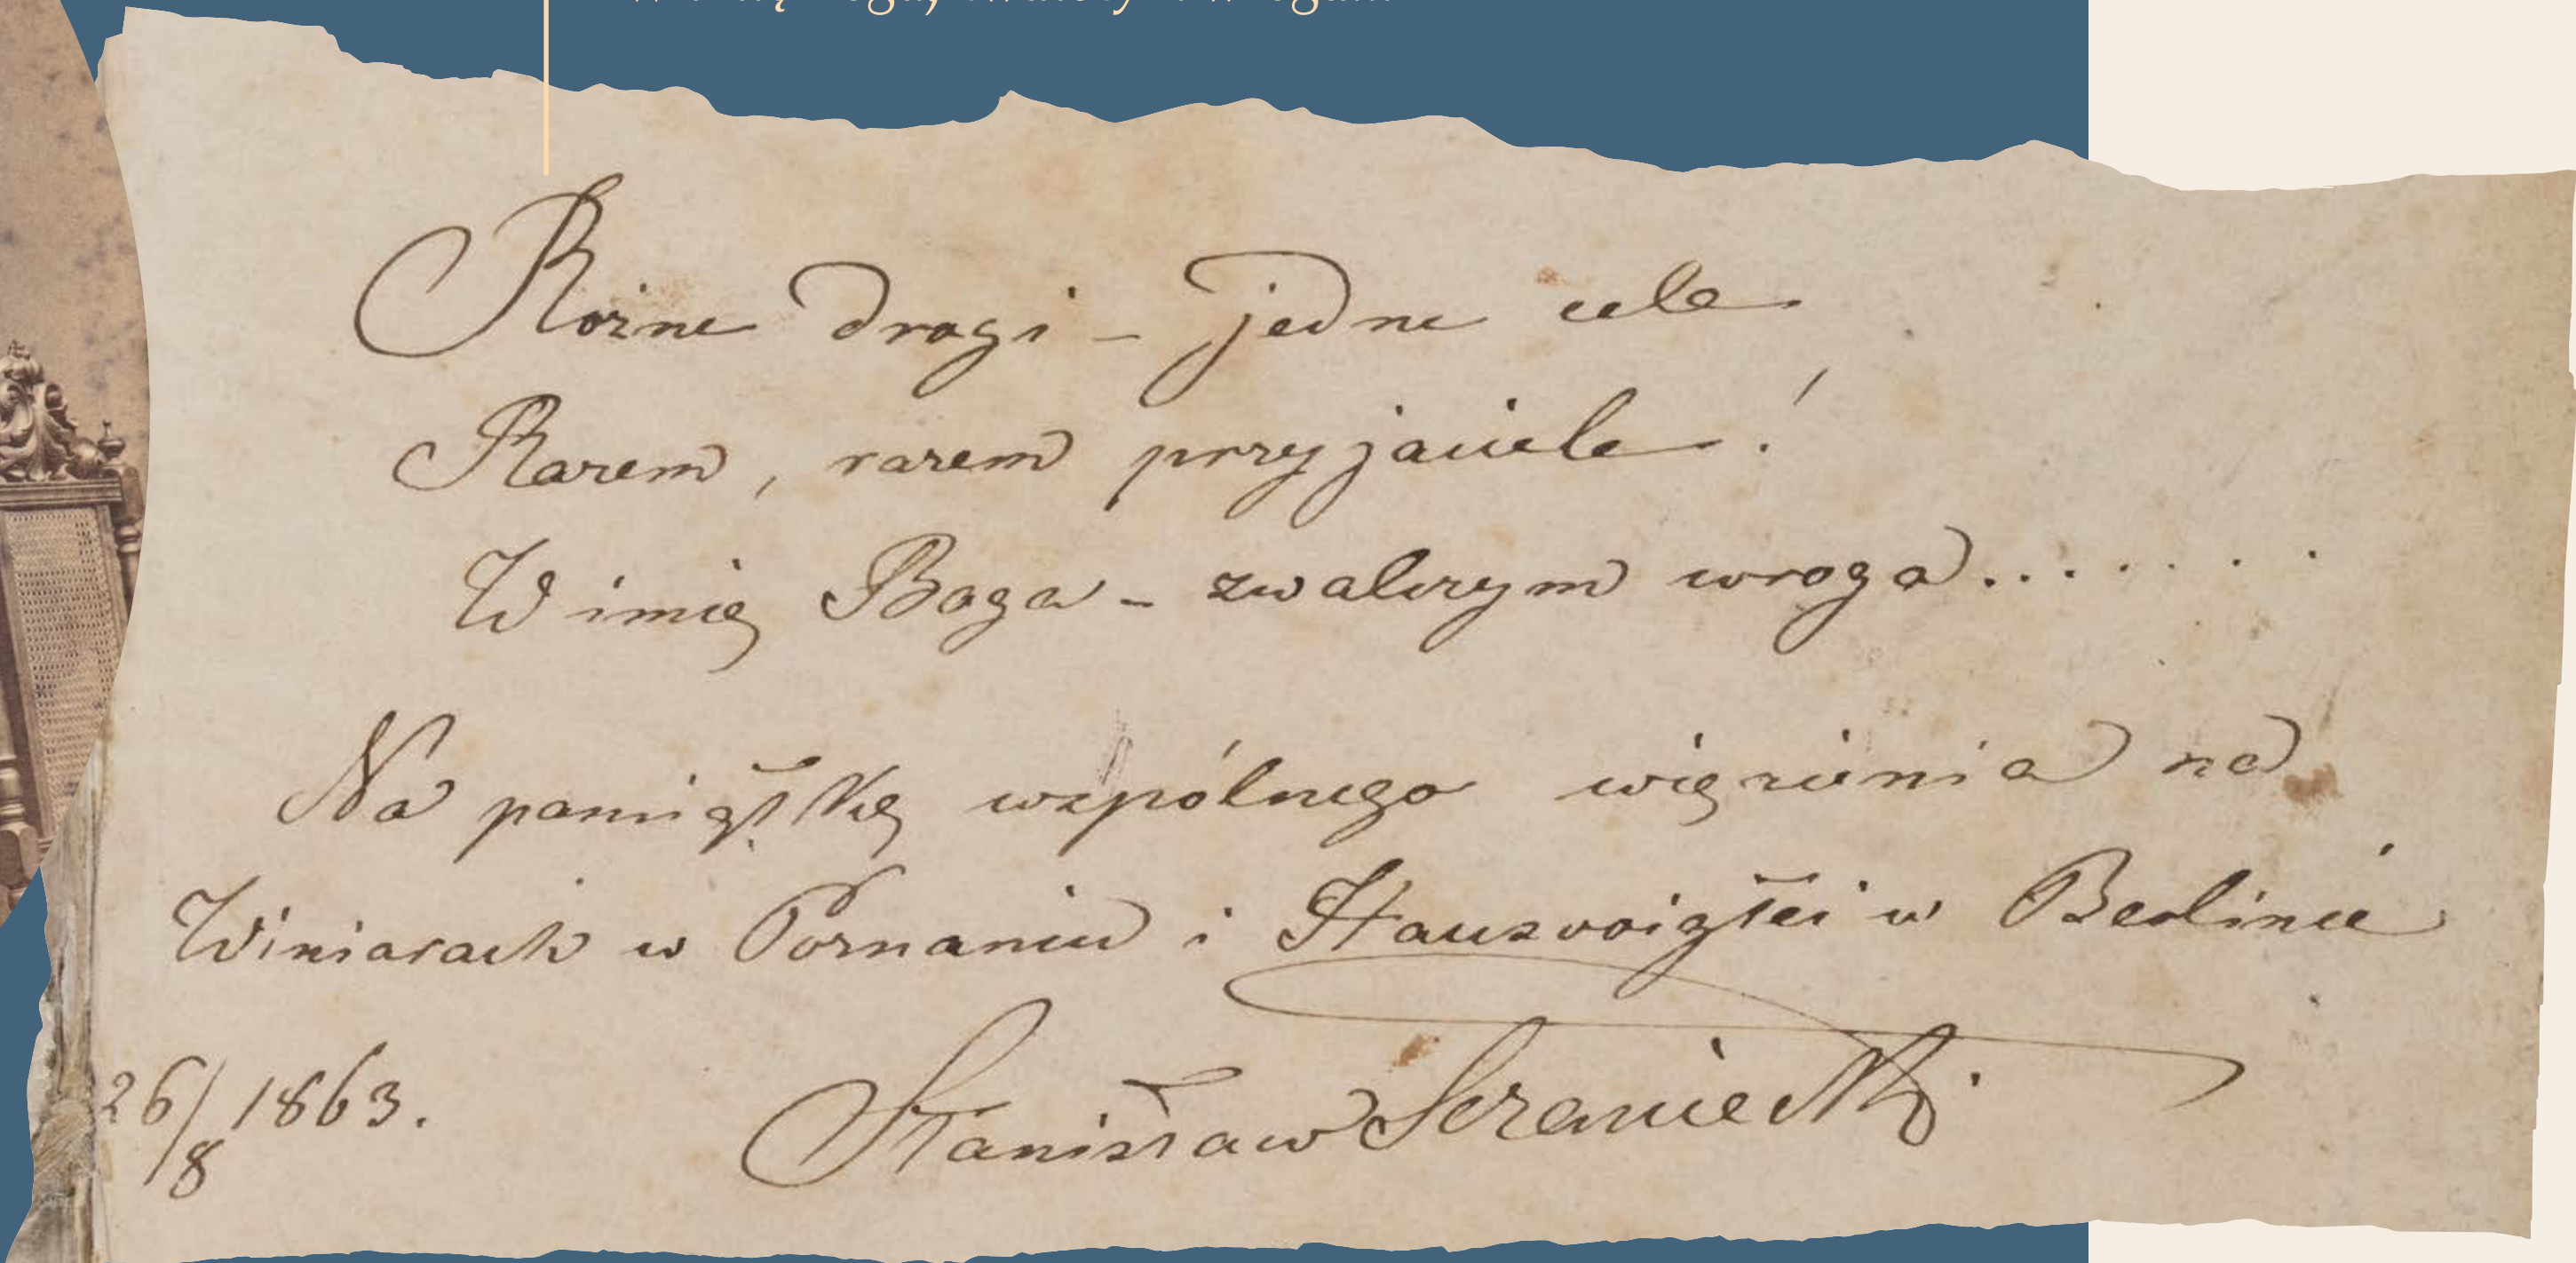 Rożne drogi – jedne cele
Razem, razem przyjaciele!
W imię Boga – zwalczym wroga........
Na pamiątkę wspólnego więzienia na
Winiarach w Poznaniu i Hausvoigtei w Berlinie
26/8 1863. Stanisław Sczaniecki